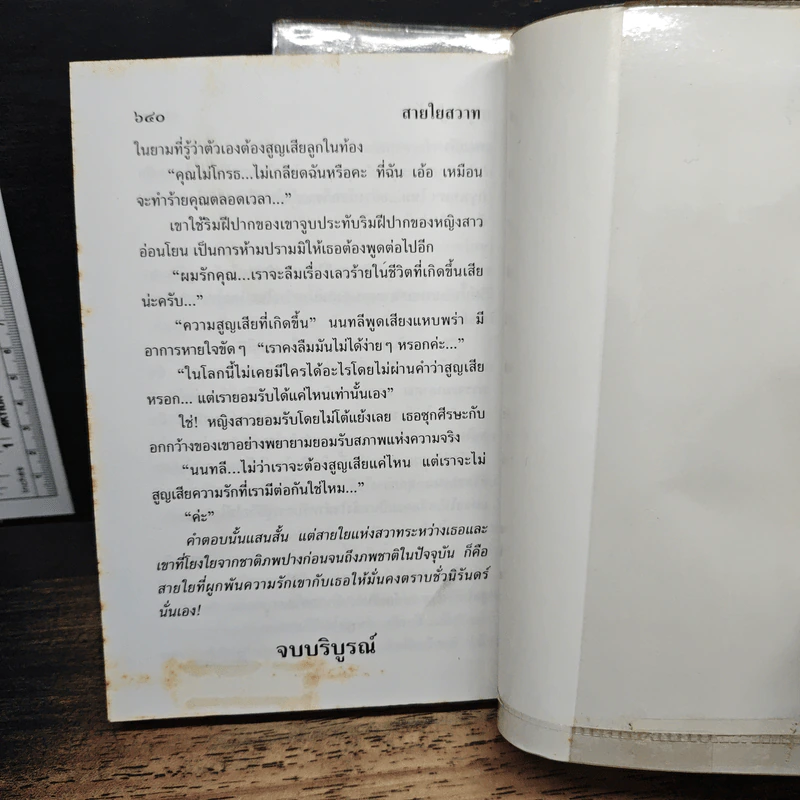 ๖๔๐ สายใยสวาท
ในยามที่รู้ว่าตัวเองต้องสูญเสียลูกในท้อง
“คุณไม่โกรธ...ไม่เกลียดฉันหรือคะ ที่ฉัน เอ้อ เหมือน
จะทำร้ายคุณตลอดเวลา...”
เขาใช้ริมฝีปากของเขาจูบประทับริมฝีปากของหญิงสาว
อ่อนโยน เป็นการห้ามปรามมิให้เธอต้องพูดต่อไปอีก
“ผมรักคุณ...เราจะลืมเรื่องเลวร้ายในชีวิตที่เกิดขึ้นเสีย
น่ะครับ...”
“ความสูญเสียที่เกิดขึ้น” นนทลีพูดเสียงแหบพร่า มี
อาการหายใจขัดๆ “เราคงลืมมันไม่ได้ง่ายๆ หรอกค่ะ...”
“ในโลกนี้ไม่เคยมีใครได้อะไรโดยไม่ผ่านคำว่าสูญเสีย
หรอก... แต่เรายอมรับได้แค่ไหนเท่านั้นเอง”
ใช่! หญิงสาวยอมรับโดยไม่โต้แย้งเลย เธอซุกศีรษะกับ
อกกว้างของเขาอย่างพยายามยอมรับสภาพแห่งความจริง
“นนทลี...ไม่ว่าเราจะต้องสูญเสียแค่ไหน แต่เราจะไม่
สูญเสียความรักที่เรามีต่อกันใช่ไหม...”
“ค่ะ”
คำตอบนั้นแสนสั้น แต่สายใยแห่งสวาทระหว่างเธอและ
เขาที่โยงใยจากชาติภพปางก่อนจนถึงภพชาติในปัจจุบัน ก็คือ
สายใยที่ผูกพันความรักเขากับเธอให้มั่นคงตราบชั่วนิรันดร์
นั่นเอง!
จบบริบูรณ์